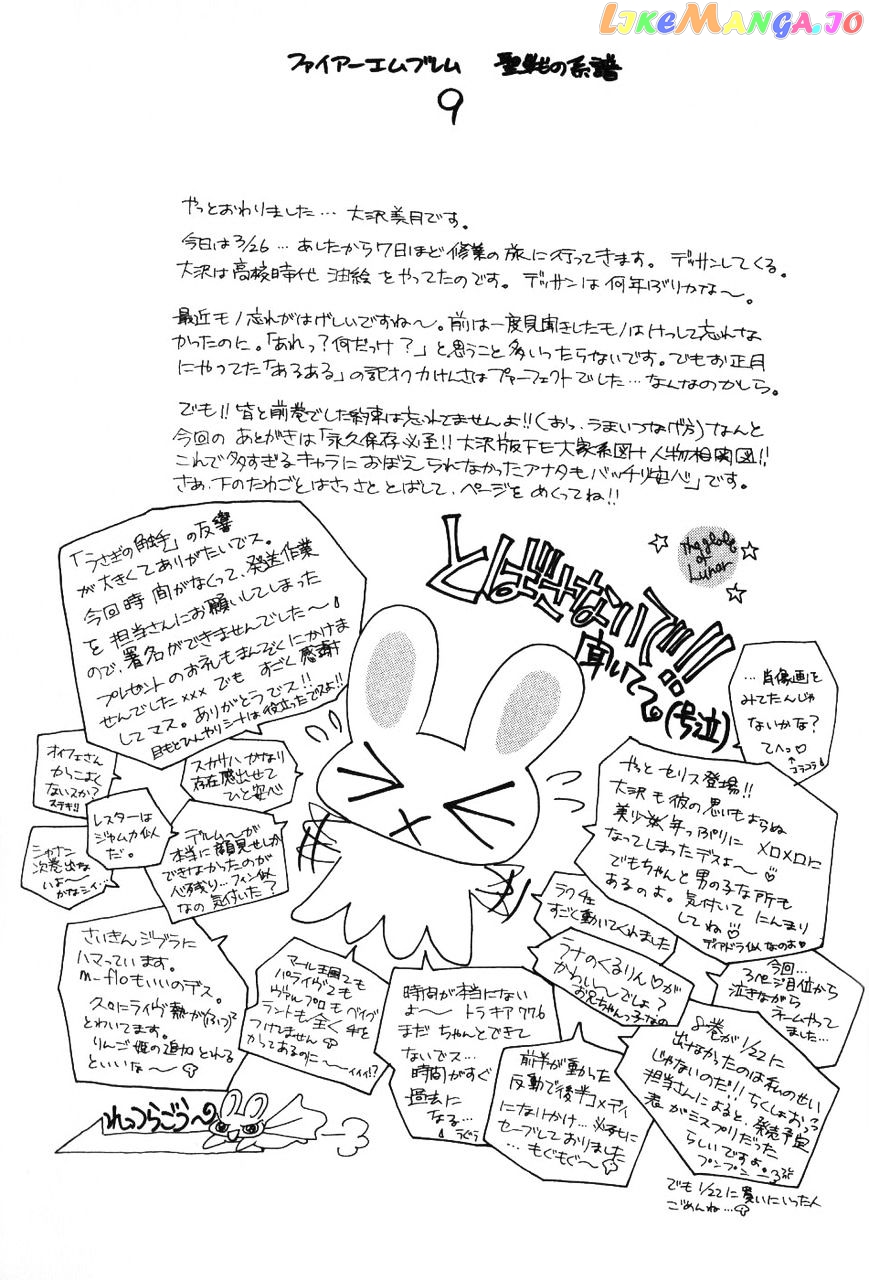 LIKEMANGA.IO
ファイアーエムブレム 聖戦の系譜
9
やっとおわりました… 大沢美月です。
今日は3/26…あしたから7日ほど修業の旅に行ってきます。デッサンしてくる。
大沢は高校時代 油絵をやってたのです。デッサンは何年ぶりかな〜。
最近モノ忘れがはげしいですね〜。前は一度見聞きしたモノはけっして忘れな
かったのに。「あれっ?何だっけ?」と思うこと多いったらないです。でもお正月
にやってた「あるある」の記オクカけんさはパーフェクトでした…なんなのかしら。
でも!!皆と前巻でした約束は忘れてませんよ!!(おっ、うまいつなげ方)なんと
今回のあとがきは「永久保存必至!!大沢版下も大家系図+人物相関図!!
これで多すぎるキャラにおぼえられなかったアナタもバッチリ安心」です。
さぁ、下のたわごとはさっさととばして、ページをめくってね!!
とばさないで!!
聞いてて。(号泣)
The globe
of
Lunar
「うさぎの触手」の反響
が大きくてありがたいでス。
今回時間がなくって、発送作業
を担当さんにお願いしてしまった
ので、署名ができませんでした〜
プレゼントのお礼もまんぞくにかけま
せんでした×××でも すごく感謝
してマス。ありがとうでス!!
目もとひんやりシートは役立ったでスよ!!
…肖像画を
みてたんじゃ
ないかな?
てへっ
↑
コラコラ
オイフェさん
かっこよく
ないスか?
ステキ!!
スカサハかなり
存在感出せて
ひと安心
レスターは
ジャムカ似
だ。
シャナン
次巻出な
いよ〜
かなシイ…
デルムーが
本当に顔見せしか
できなかったのが
心残り…フィン似
なの気付いた?
やっとセリス登場!!
大沢も彼の思いもよらぬ
美少年っぷりにメロメロに
なってしまったデスよ〜♡
でもちゃんと男の子な所も
あるのよ。気付いてにんまり
してね♡
ディアドラ似なのよ♡
ラクチェ
すごく動いてくれました
ラナのくるりん♡が
かわい〜でしょ?
お兄ちゃんっ子なの
今回…
3ページ目位から
泣きながら
ネームやって
ました…
さいきんジブラに
ハマっています。
m-floもいいのデス。
久々にライヴ熱が(ふつ?)
とわいてます。
りんご姫の追加とれる
といいな〜
マール王国2も
パライヴ2も
ヴァルプロもベイグ
ラントも全く手を
つけてません
かってあるのに〜ィィィ!?
時間が本当にない
よ〜 トラキア776
まだちゃんとできて
ないでス…
時間がすぐ
過去に
なる…
らぐう
前半が動かった
反動で後半コメディ
になりかけ…必死に
セーブしておりました
…もぐもぐ〜
8巻が1/22に
出なかったのは私のせい
じゃないのだ!!ちくしょおっっ
担当さんによると、発売予定
表がミスプリだった
らしいですよ。
プンプン
でも1/22に買いにいった人
ごめんね…
れっつらごう〜